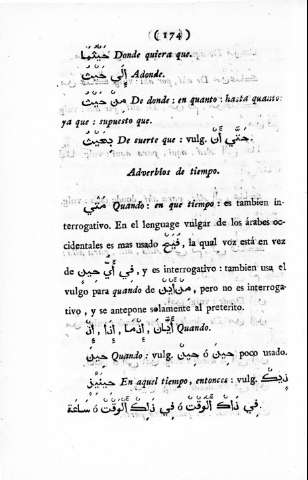 (174)
حَيْثُمَا Donde quiera que.
إِلَي حَيْثُ Adonde.
مِنْ حَيْثُ De donde: en quanto: hasta quanto:
ya que: supuesto que.
حَتَّي أَنْ De suerte que: vulg. بِحَيْثُ.
Adverbios de tiempo.
مَتَي Quando: en que tiempo: es tambien in-
terrogativo. En el lenguage vulgar de los árabes oc-
cidentales es mas usado, la qual voz está en vez
de فِي أَيِّ حِينٍ, y es interrogativo: tambien usa el
vulgo para quando de, pero no es interroga-
tivo, y se antepone solamente al preterito.
أَيَّانَ, إِذْمَا, إِذَا, إِذْ Quando.
حِينَ Quando: vulg. حِينْ ó حِينَ poco usado.
حِينَيِذٍ En aquel tiempo, entonces: vulg.
فِي ذَاكْ ٱلْوَقْتْ ó فِي ذَلِكْ ٱلْوَقْتْ ó سَاعَة